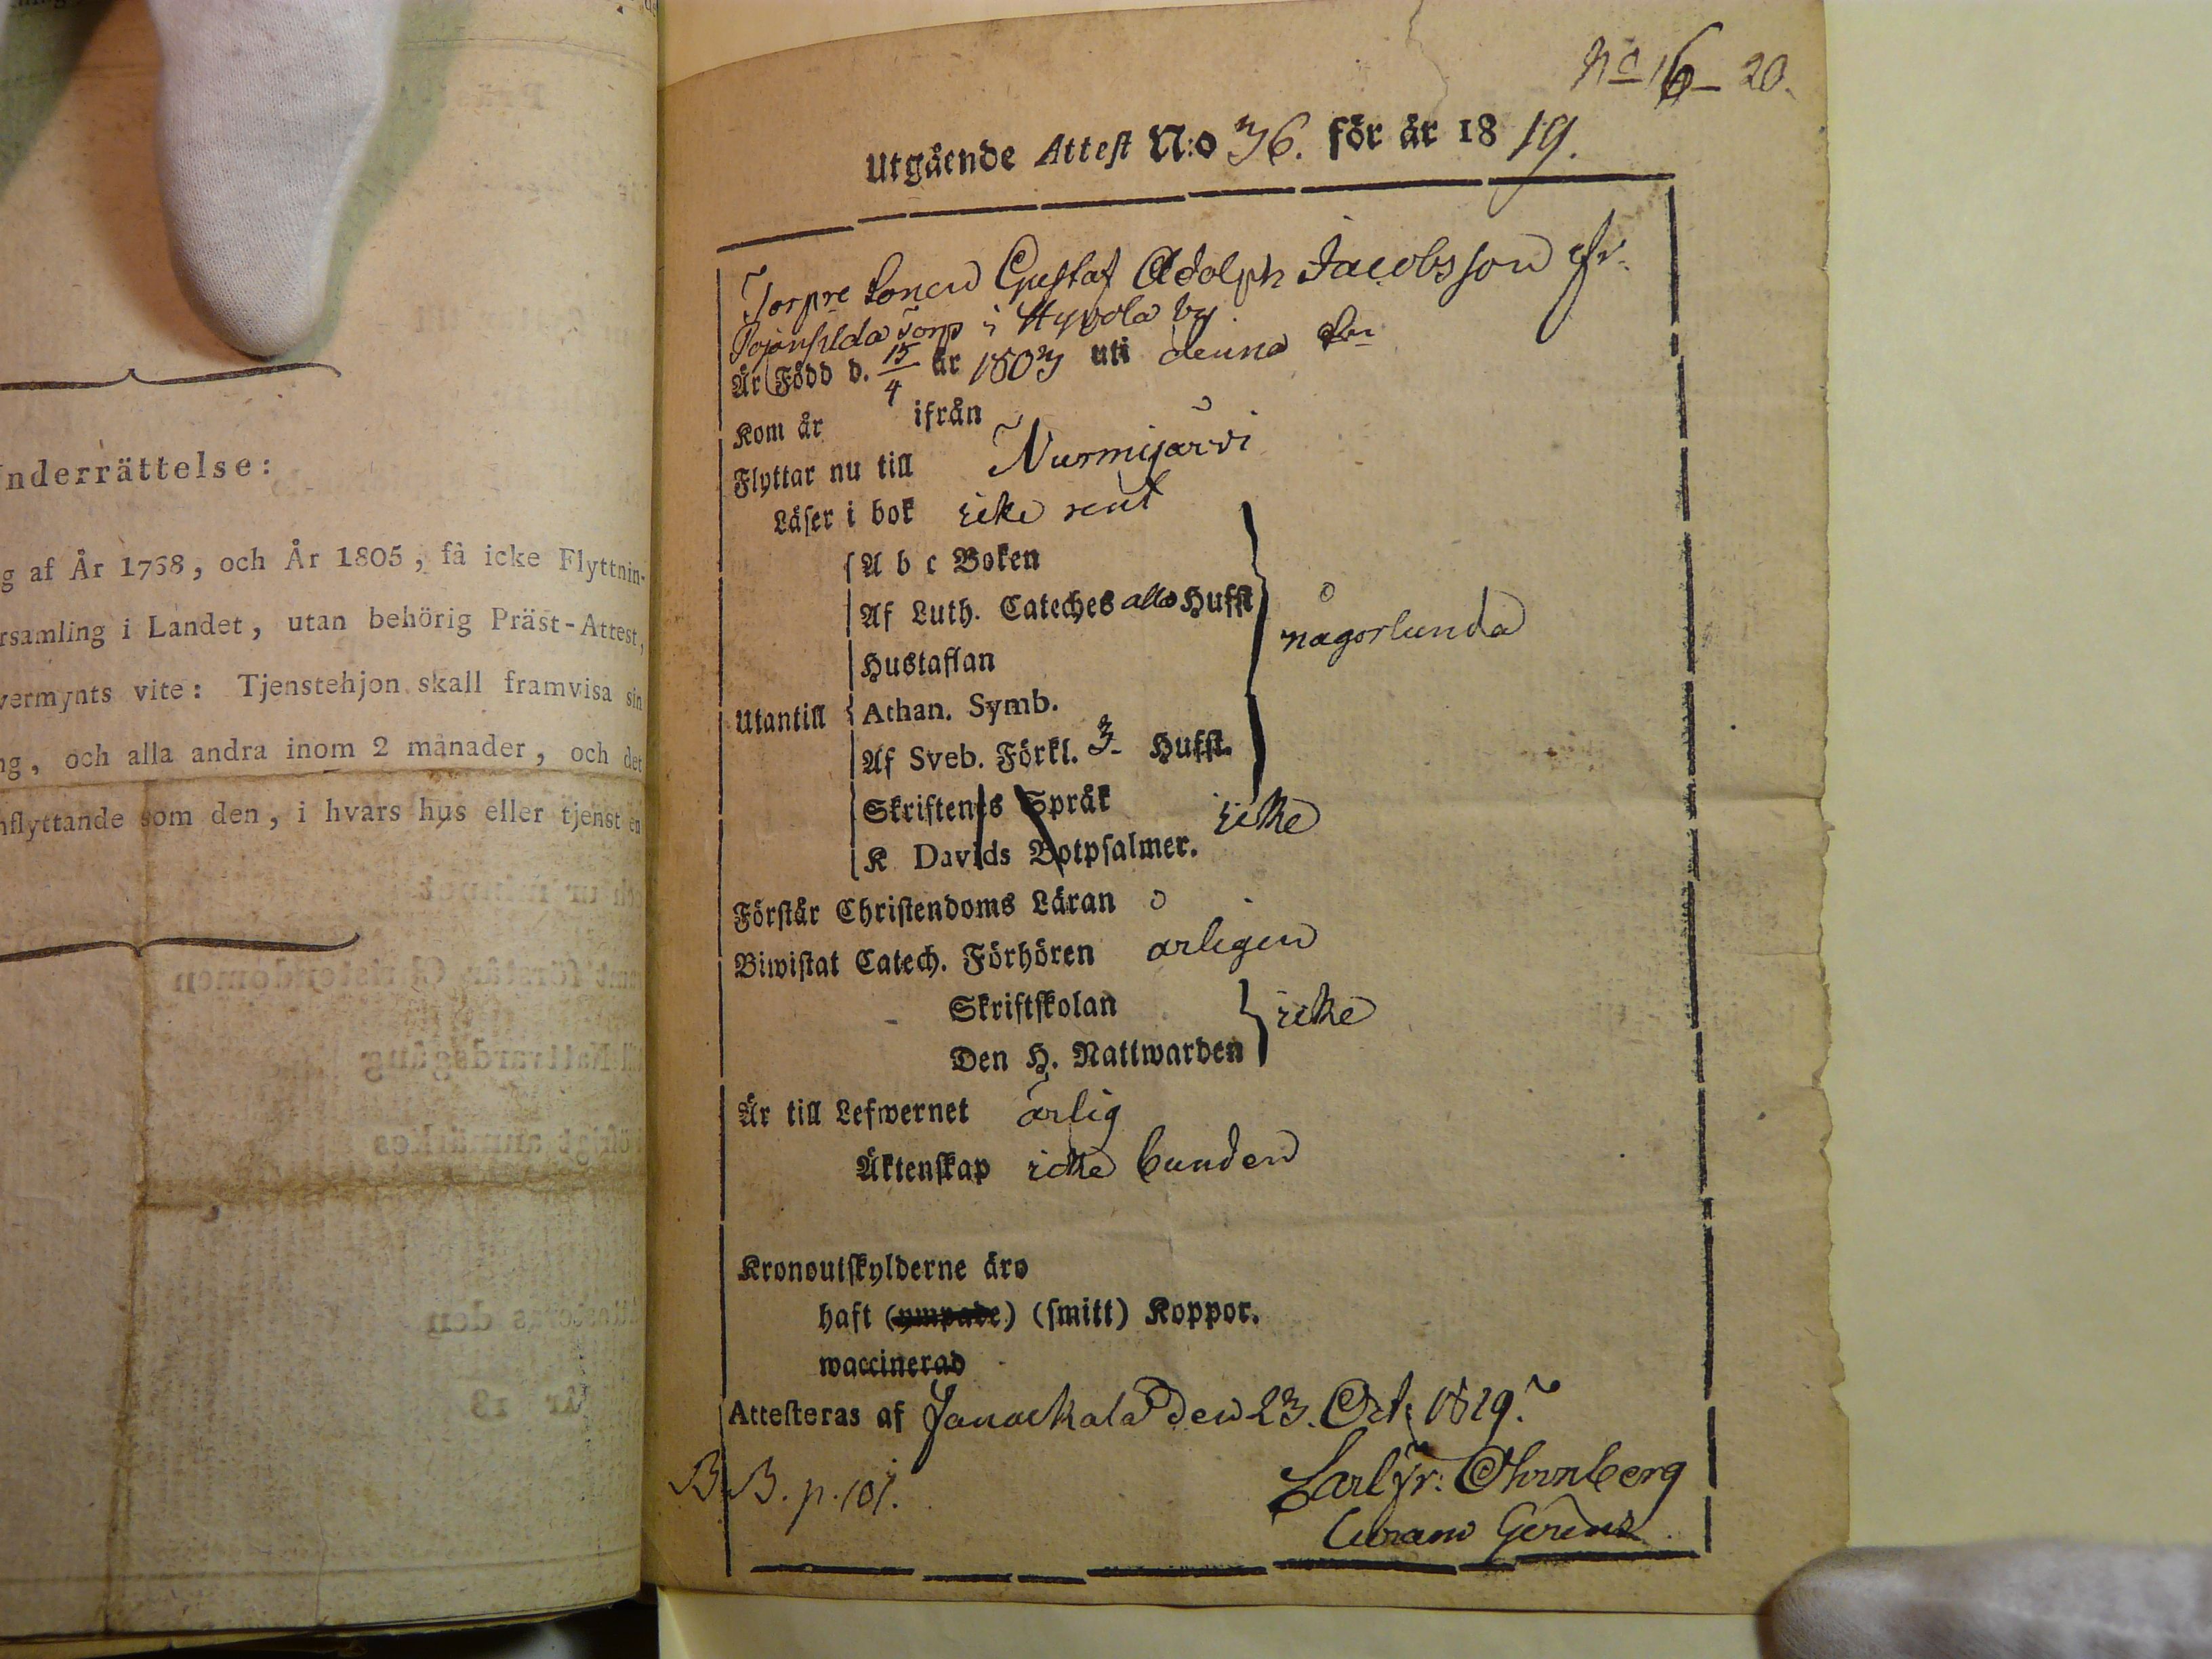 nderrättelse:
g af År 1768, och År 1805, få icke Flyttnin-
rsamling i Landet, utan behörig Präst-Attest,
vermynts vite: Tjenstehjon skall framvisa sin
ng, och alla andra inom 2 månader, och det
nflyttande som den, i hvars hus eller tjenst en
No 16 - 20.
Utgående Attest N:o 36. för år 1819.
Torpre Sonen Gustaf Adolph Jacobsson fr.
Torp i Hyvola by
Är Född d. 15/4 år 1803 uti denna
Kom år ifrån
Flyttar nu till Nurmijärvi
Läser i bok icke rent
A b c Boken
Af Luth. Cateches alla Hufst
Hustaflan
någorlunda
Utantill Athan. Symb.
Af Sveb. Förkl. 3 Hufst.
Skriftenes Språk
icke
K Davids Botpsalmer.
Förstår Christendoms Läran
Biwistat Catech. Förhören årligen
Skriftskolan
icke
Den H. Nattwarden
Är till Lefwernet ärlig
Äktenskap icke bunden
Kronoutskylderne äro
haft (ympade) (smitt) Koppor.
waccinerad
Attesteras af Janackala den 23. Oct. 1819.
B.B. p. 101.
Carl Fr: Ohrnberg
Curam Gerens